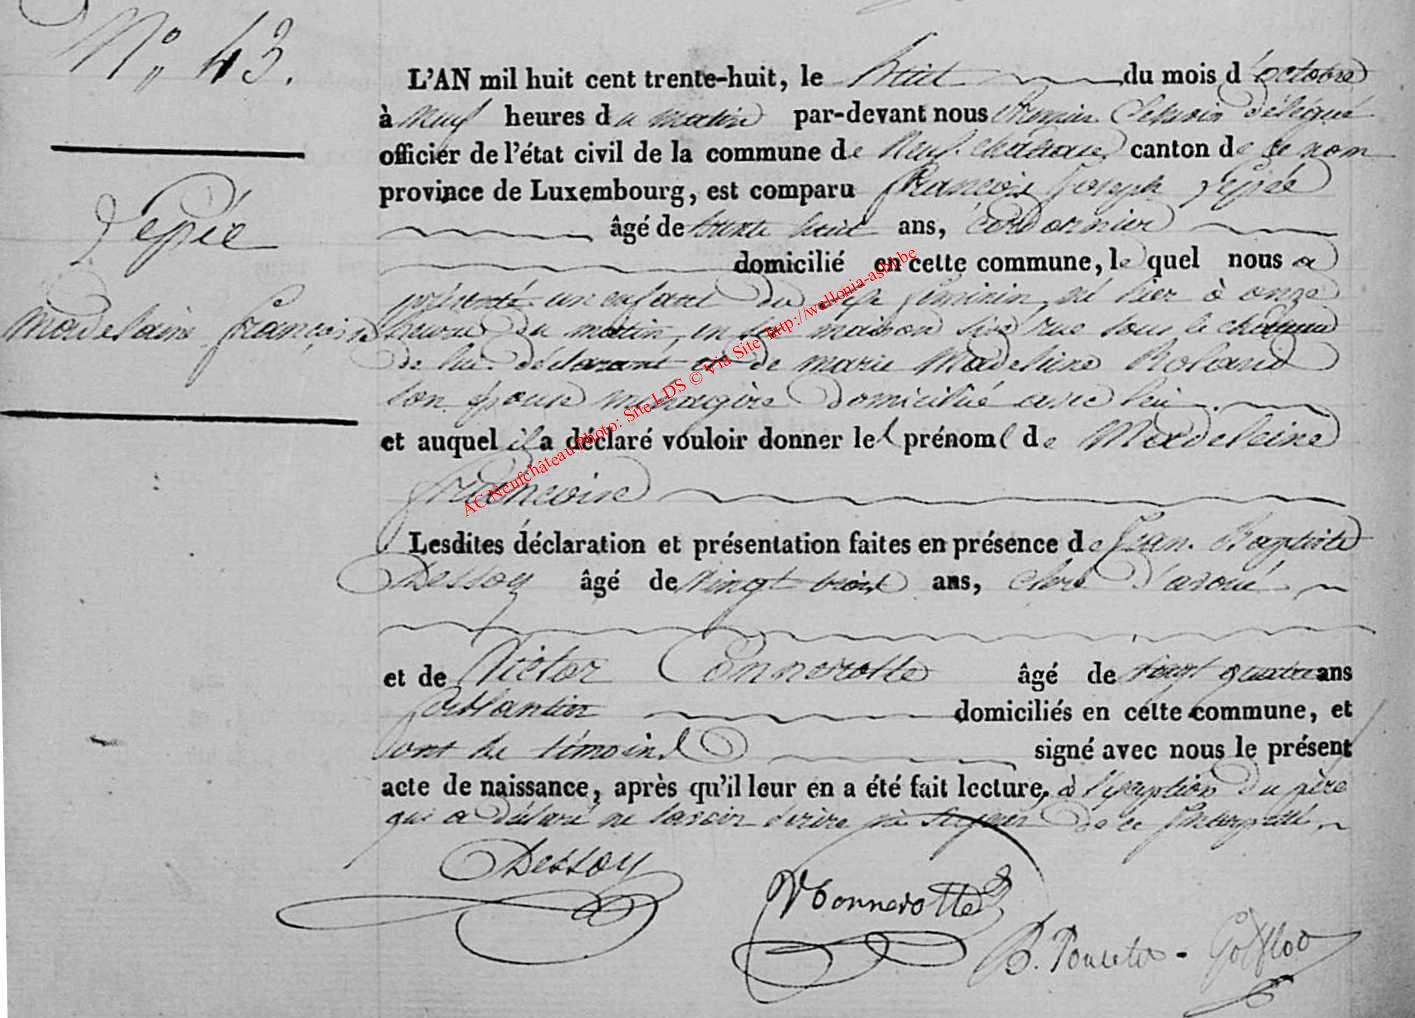 N° 43.
Lepié
Madelaine françoise
L'AN mil huit cent trente-huit, le huit du mois d'octobre
à neuf heures du matin par-devant nous Premier Echevin délégué
officier de l'état civil de la commune de Neufchateau canton de ce nom
province de Luxembourg, est comparu François Joseph Lepiée
âgé de trente huit ans, cordonnier
domicilié en cette commune, lequel nous a
présenté un enfant du sexe féminin, né hier à onze
heures du matin, en sa maison sise rue sous le chateau
de lui déclarant et de marie Madeleine Roland
son épouse ménagère domiciliée avec lui
et auquel il a déclaré vouloir donner les prénoms de Madeleine
françoise
Lesdites déclaration et présentation faites en présence de Jean. Baptiste
Dessoy âgé de vingt trois ans, clerc d'avoué
et de Victor Connerotte âgé de vingt quatre ans
ferblantier domiciliés en cette commune, et
ont les témoins signé avec nous le présent
acte de naissance, après qu'il leur en a été fait lecture, à l'exception du père
qui a déclaré ne savoir écrire ni signer de ce interpellé,
Dessoy
V Connerotte
P. Poncelet - Golfloo
AC Neufchâteau Photo: Site LDS © Via Site http://wallonia-asbl.be